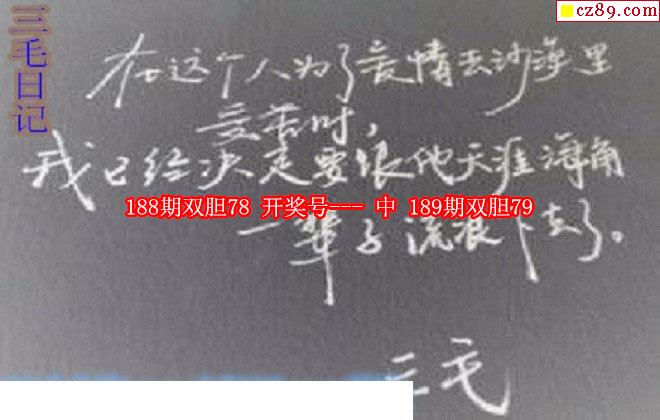 cz89.com
三毛日记
在这个人为了爱情去沙漠里
受苦时，
我已经决定要跟他天涯海角
188期双胆78 开奖号--- 中 189期双胆79
一辈子流浪下去了。
三毛